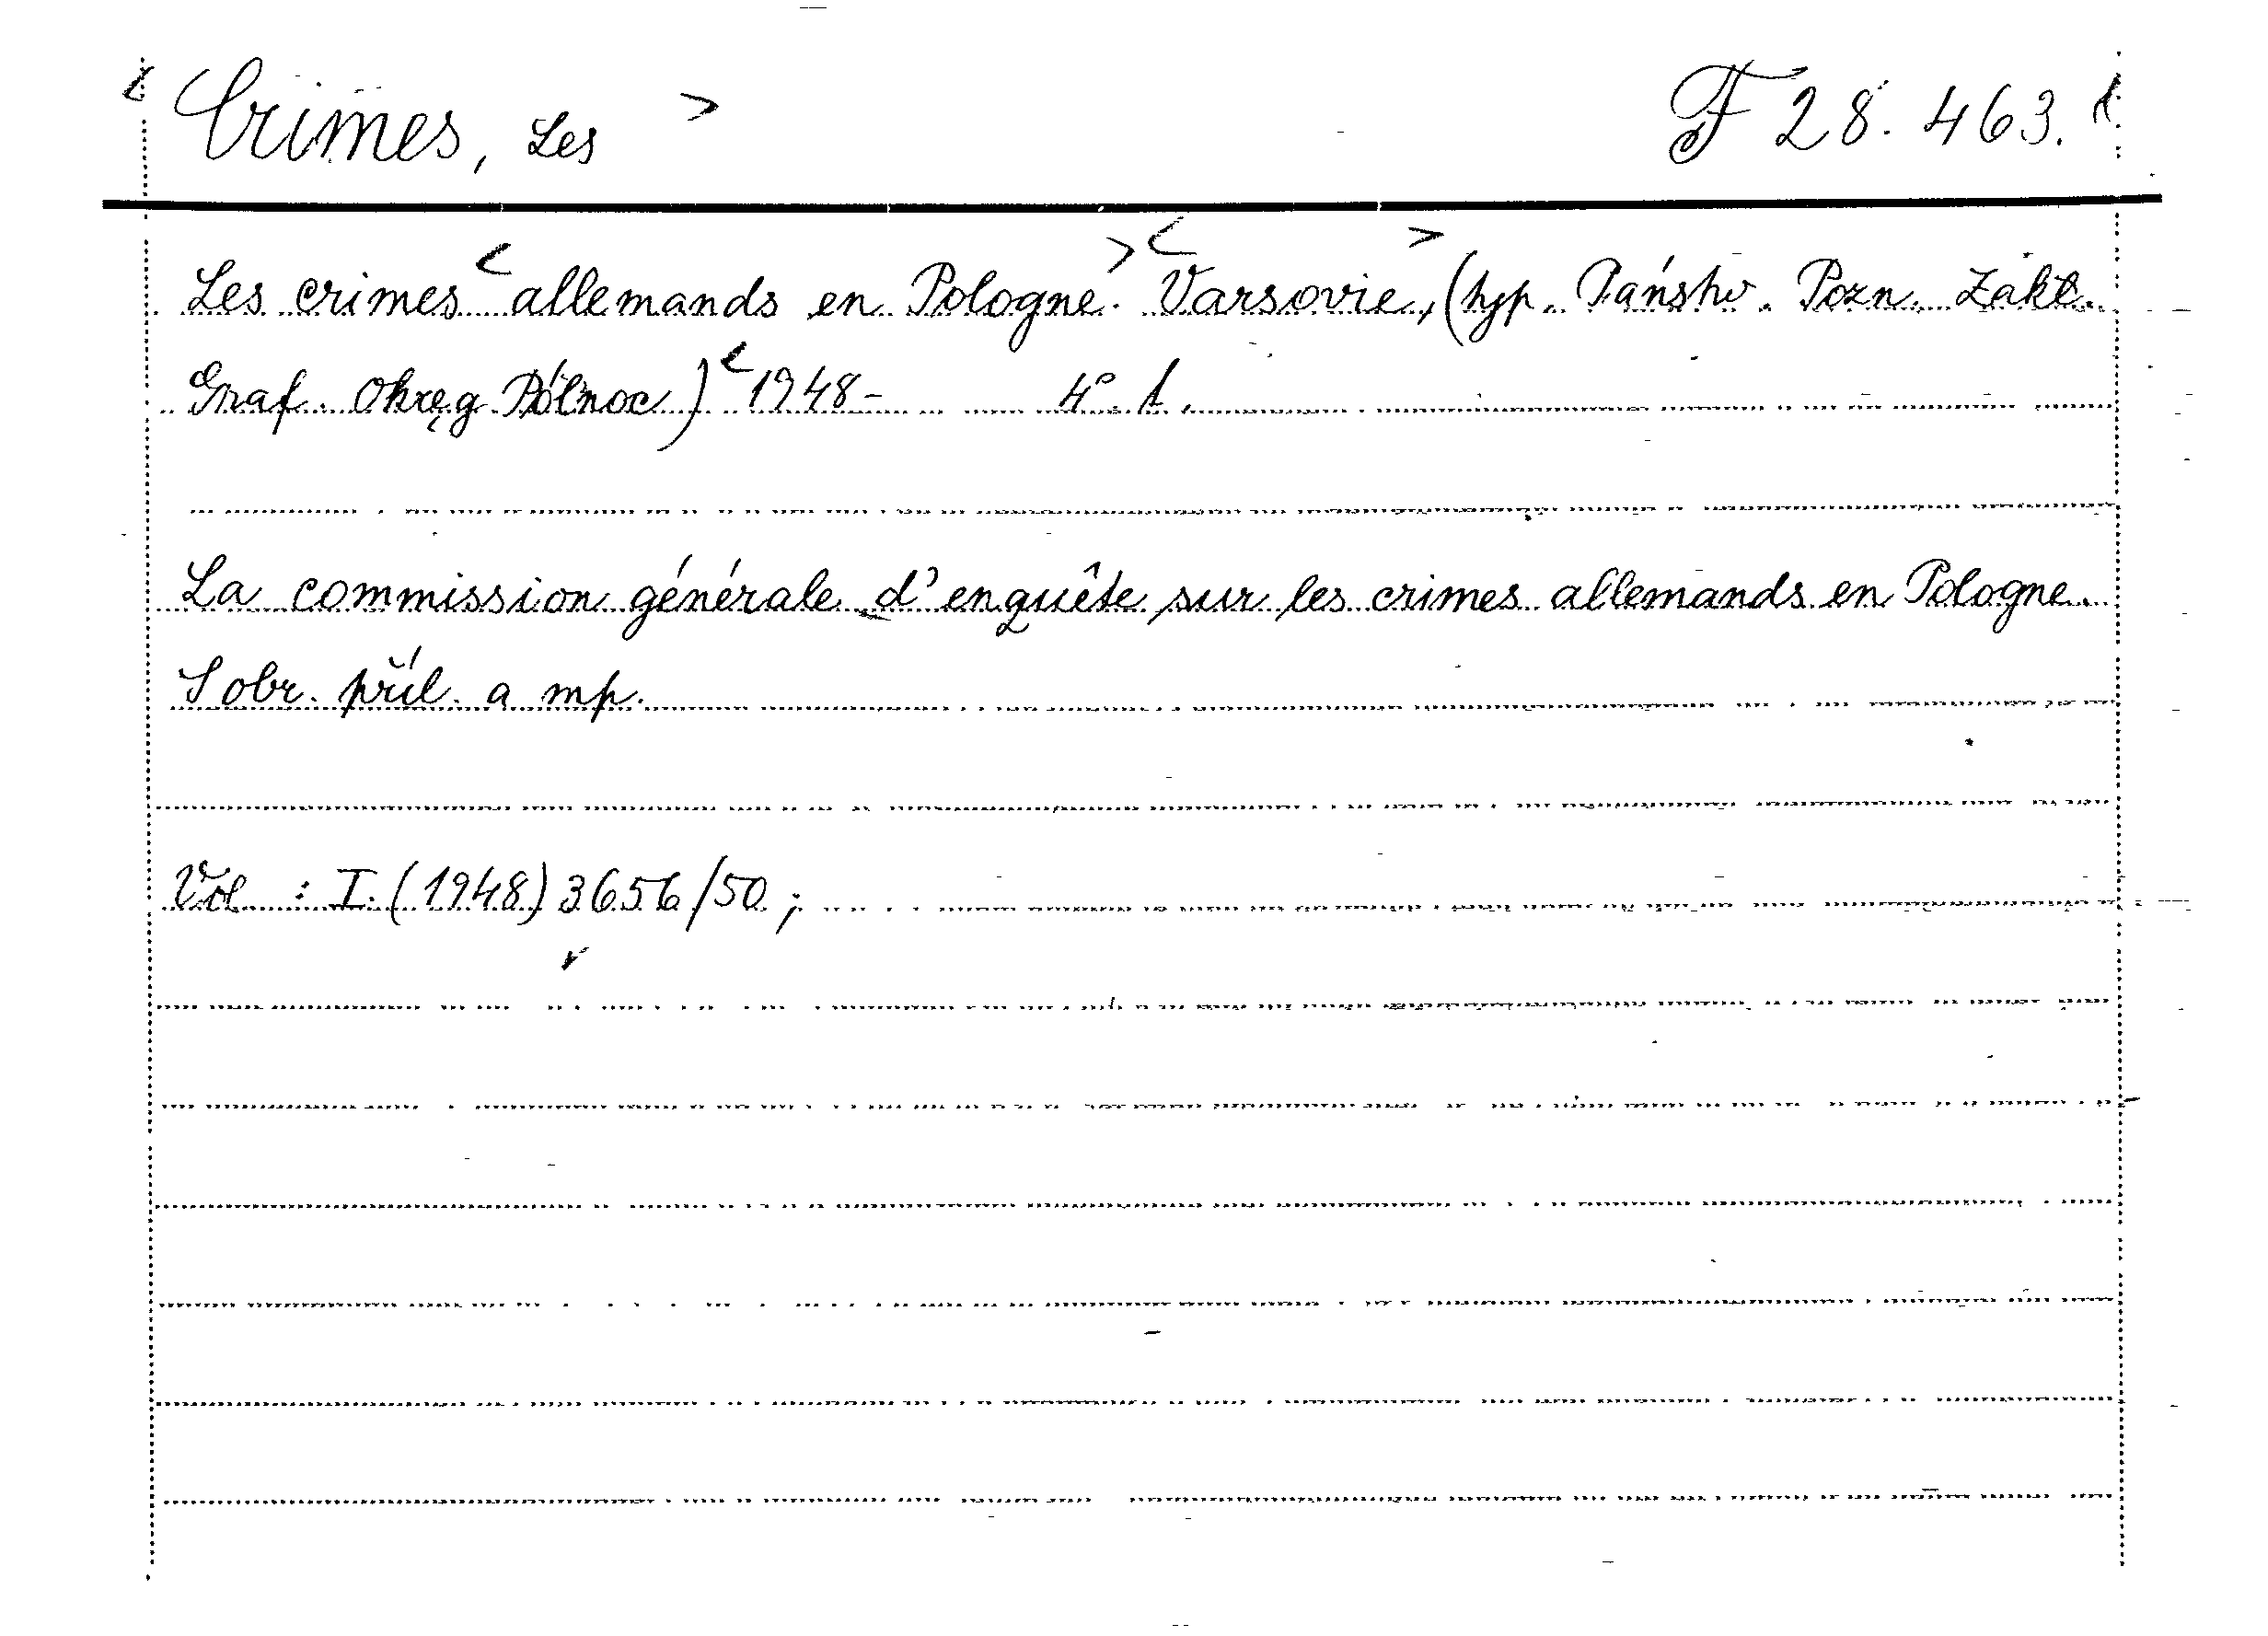 Crimes, Les F 28.463.
Les crimes allemands en Pologne. Varsovie, (typ. Państw. Pozn. Zakł.
Graf. Okręg Północ) 1948- 4°. 1.
La commission générale d'enquête sur les crimes allemands en Pologne.
S obr. příl. a mp.
Vol. : I. (1948) 3656/50;